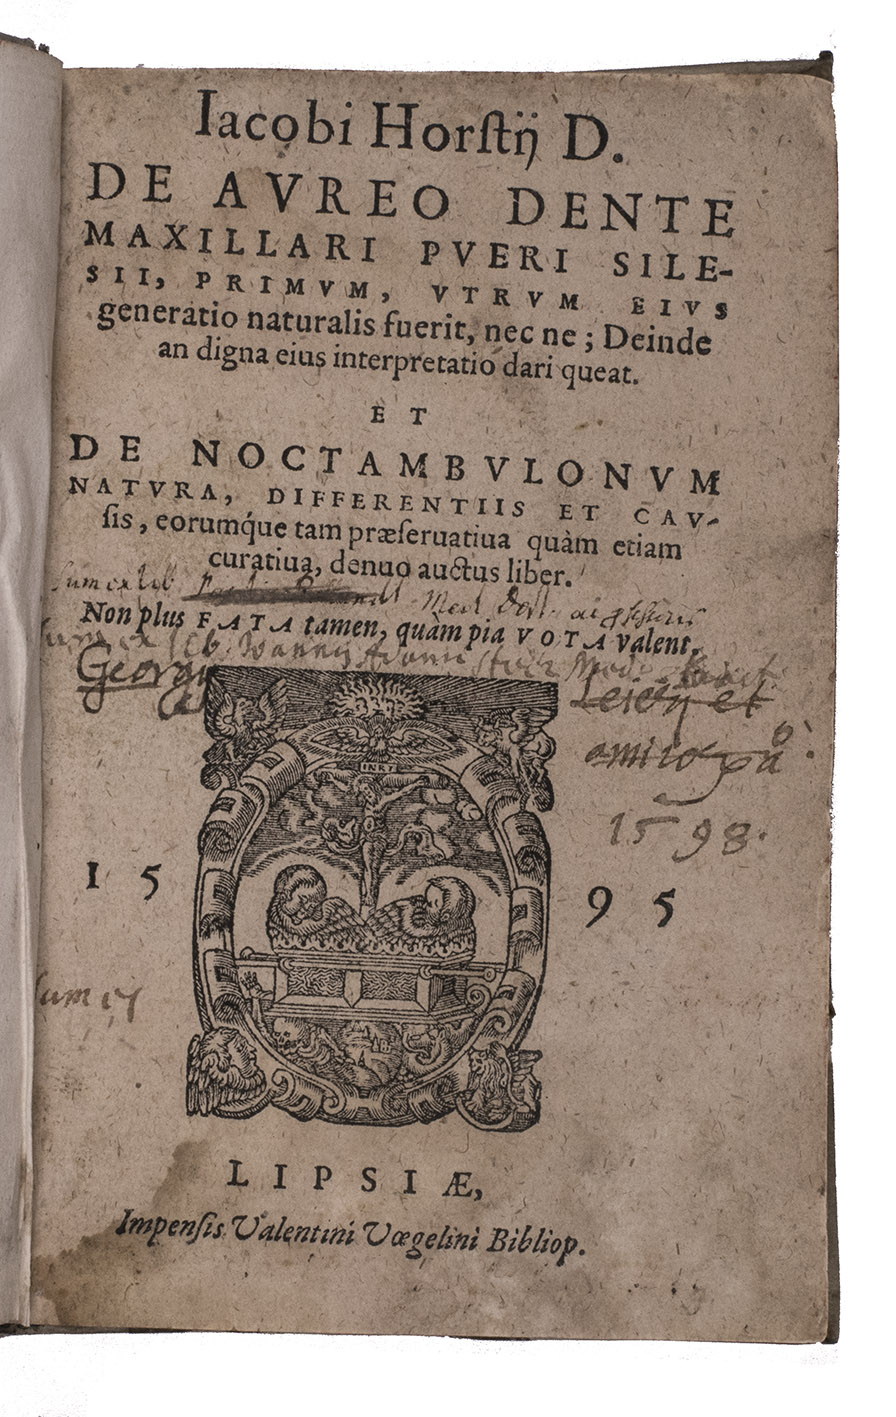 Iacobi Horstij D.
DE AVREO DENTE
MAXILLARI PVERI SILE-
SII, PRIMVM, VTRVM EIVS
generatio naturalis fuerit, nec ne; Deinde
an digna eius interpretatio dari queat.
ET
DE NOCTAMBVLONVM
NATVRA, DIFFERENTIIS ET CAV-
sis, eorumq́ue tam præseruatiua quàm etiam
curatiua, denuo auctus liber.
Sum ex lib
Non plus FATA tamen, quàm pia VOTA valent.
Sum ex lib.
Georgij
et
amico
INRI
1598.
15 95
Sum ex
LIPSIÆ,
Impensis Valentini Vœgelini Bibliop.